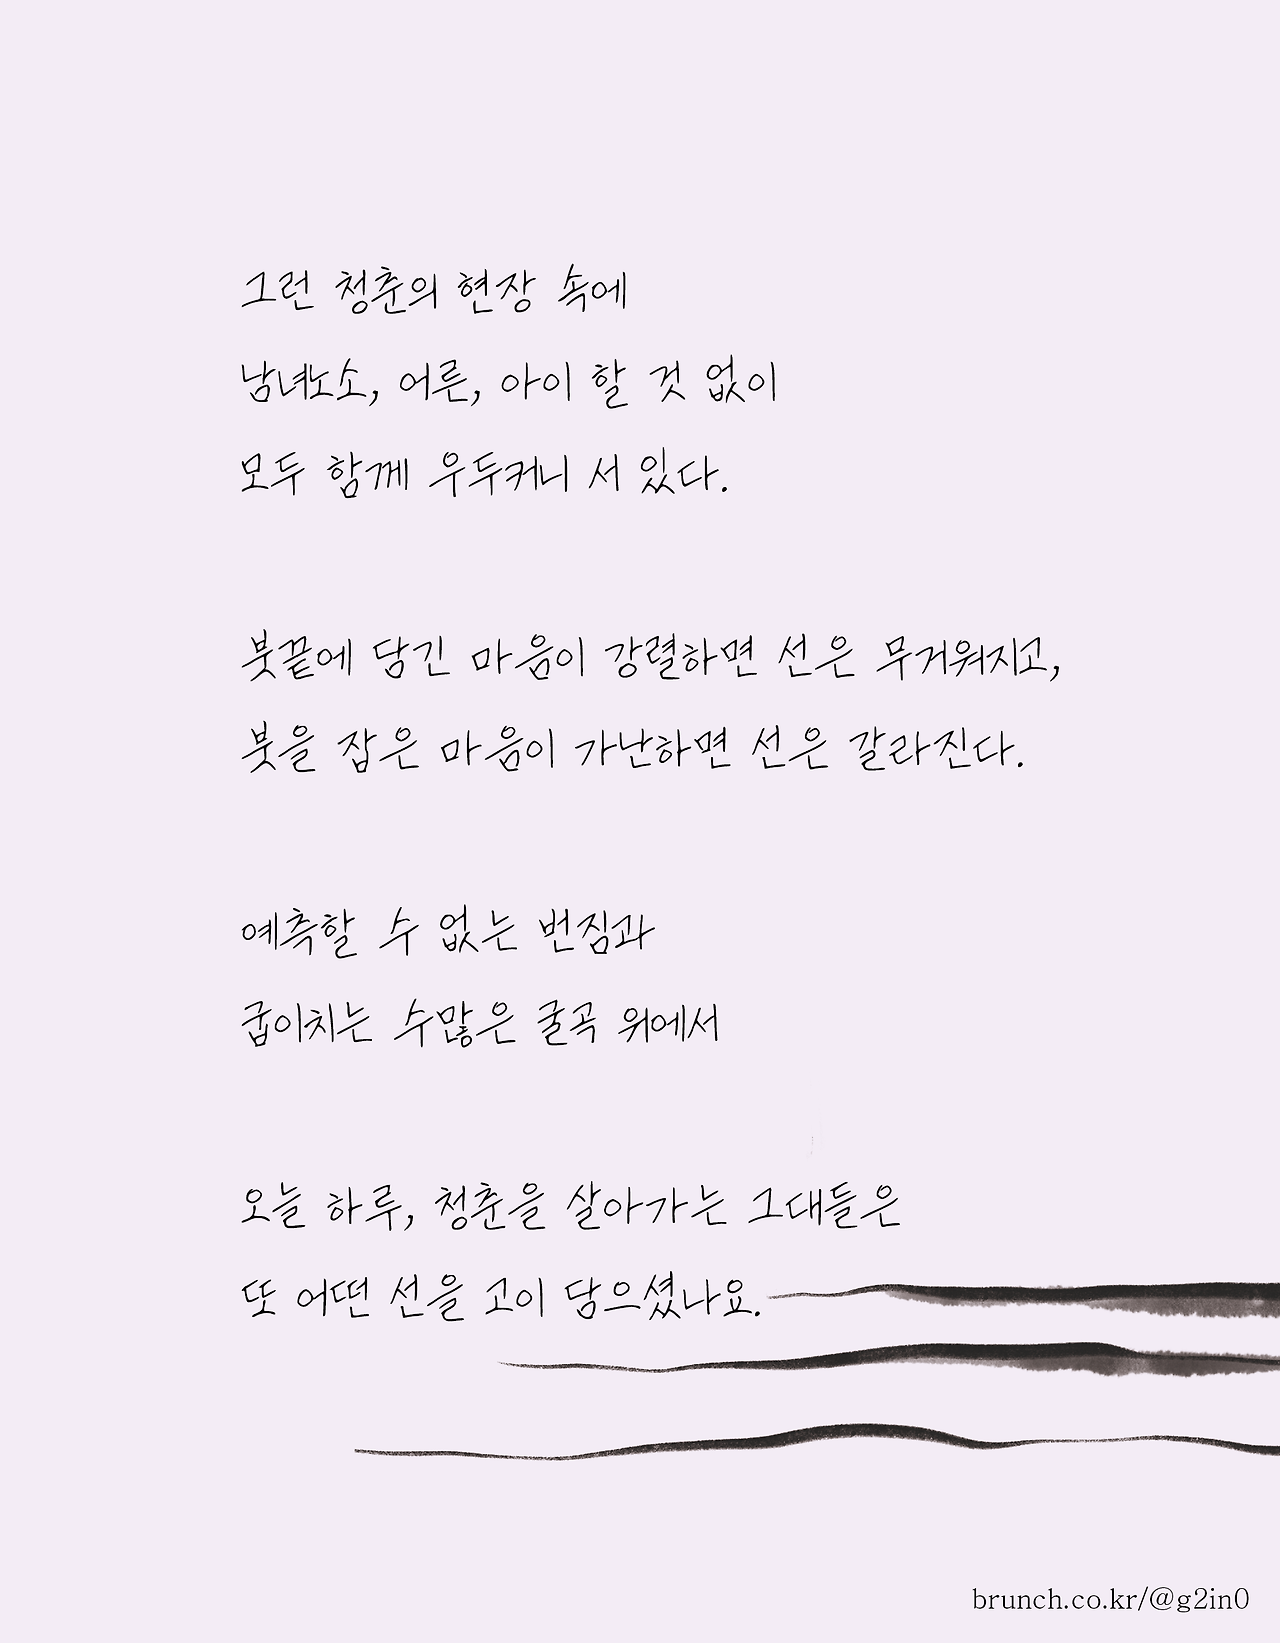 그런 청춘의 현장 속에
남녀노소, 어른, 아이 할 것 없이
모두 함께 우두커니 서 있다.
붓끝에 담긴 마음이 강렬하면 선은 무거워지고,
붓을 잡은 마음이 가난하면 선은 갈라진다.
예측할 수 없는 번짐과
굽이치는 수많은 굴곡 위에서
오늘 하루, 청춘을 살아가는 그대들은
또 어떤 선을 고이 담으셨나요.
brunch.co.kr/@g2in0